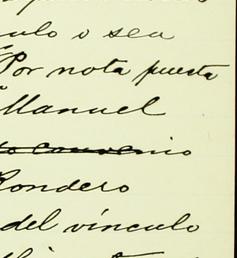 culo o sea
Por nota puesta
Manuel
convenio
Rondero
del vínculo